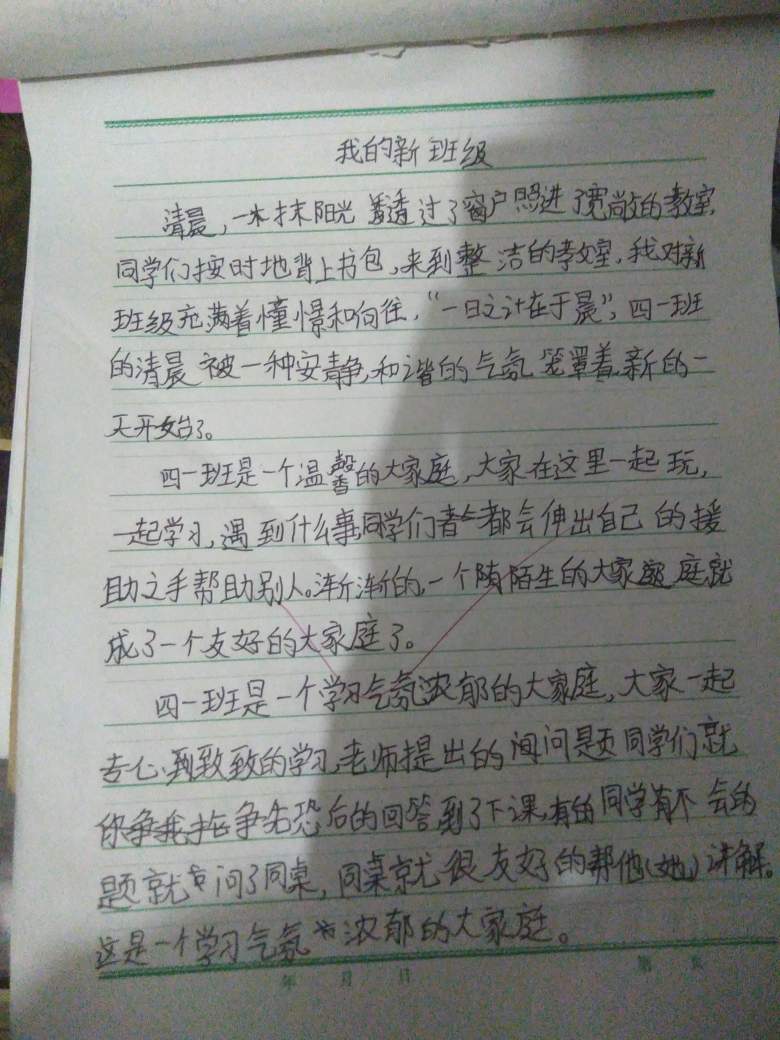 我的新班级
清晨，一抹阳光透过了窗户照进了宽敞的教室，
同学们按时地背上书包，来到整洁的教室，我对新
班级充满着憧憬和向往，“一日之计在于晨”，四一班
的清晨被一种安静，和谐的气氛笼罩着新的一
天开始了。
四一班是一个温馨的大家庭，大家在这里一起玩，
一起学习，遇到什么事同学们都会伸出自己的援
助之手帮助别人。渐渐的，一个陌生的大家庭就
成了一个友好的大家庭了。
四一班是一个学习气氛浓郁的大家庭，大家一起
专心致致的学习，老师提出的问题同学们就
你争我抢争先恐后的回答到了下课，有的同学有不会的
题就问了同桌，同桌就很友好的帮他（她）讲解。
这是一个学习气氛浓郁的大家庭。
年 月 日 第 页